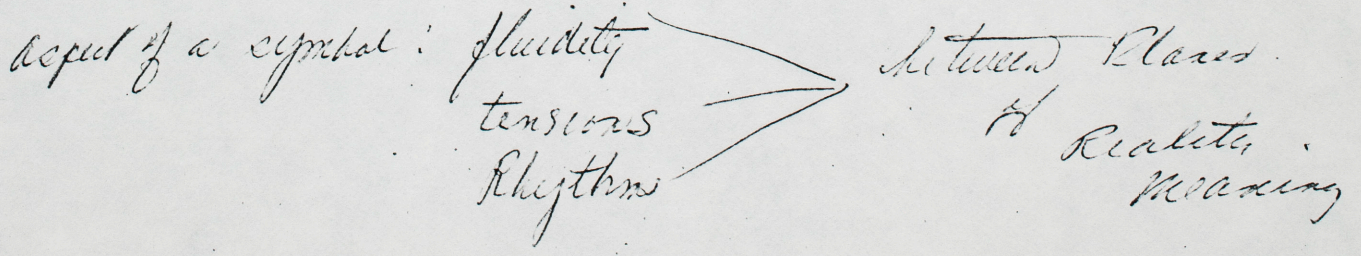 aspect of a symbol : fluidity
tensions
Rhythms
between Planes
of
Reality.
Meaning